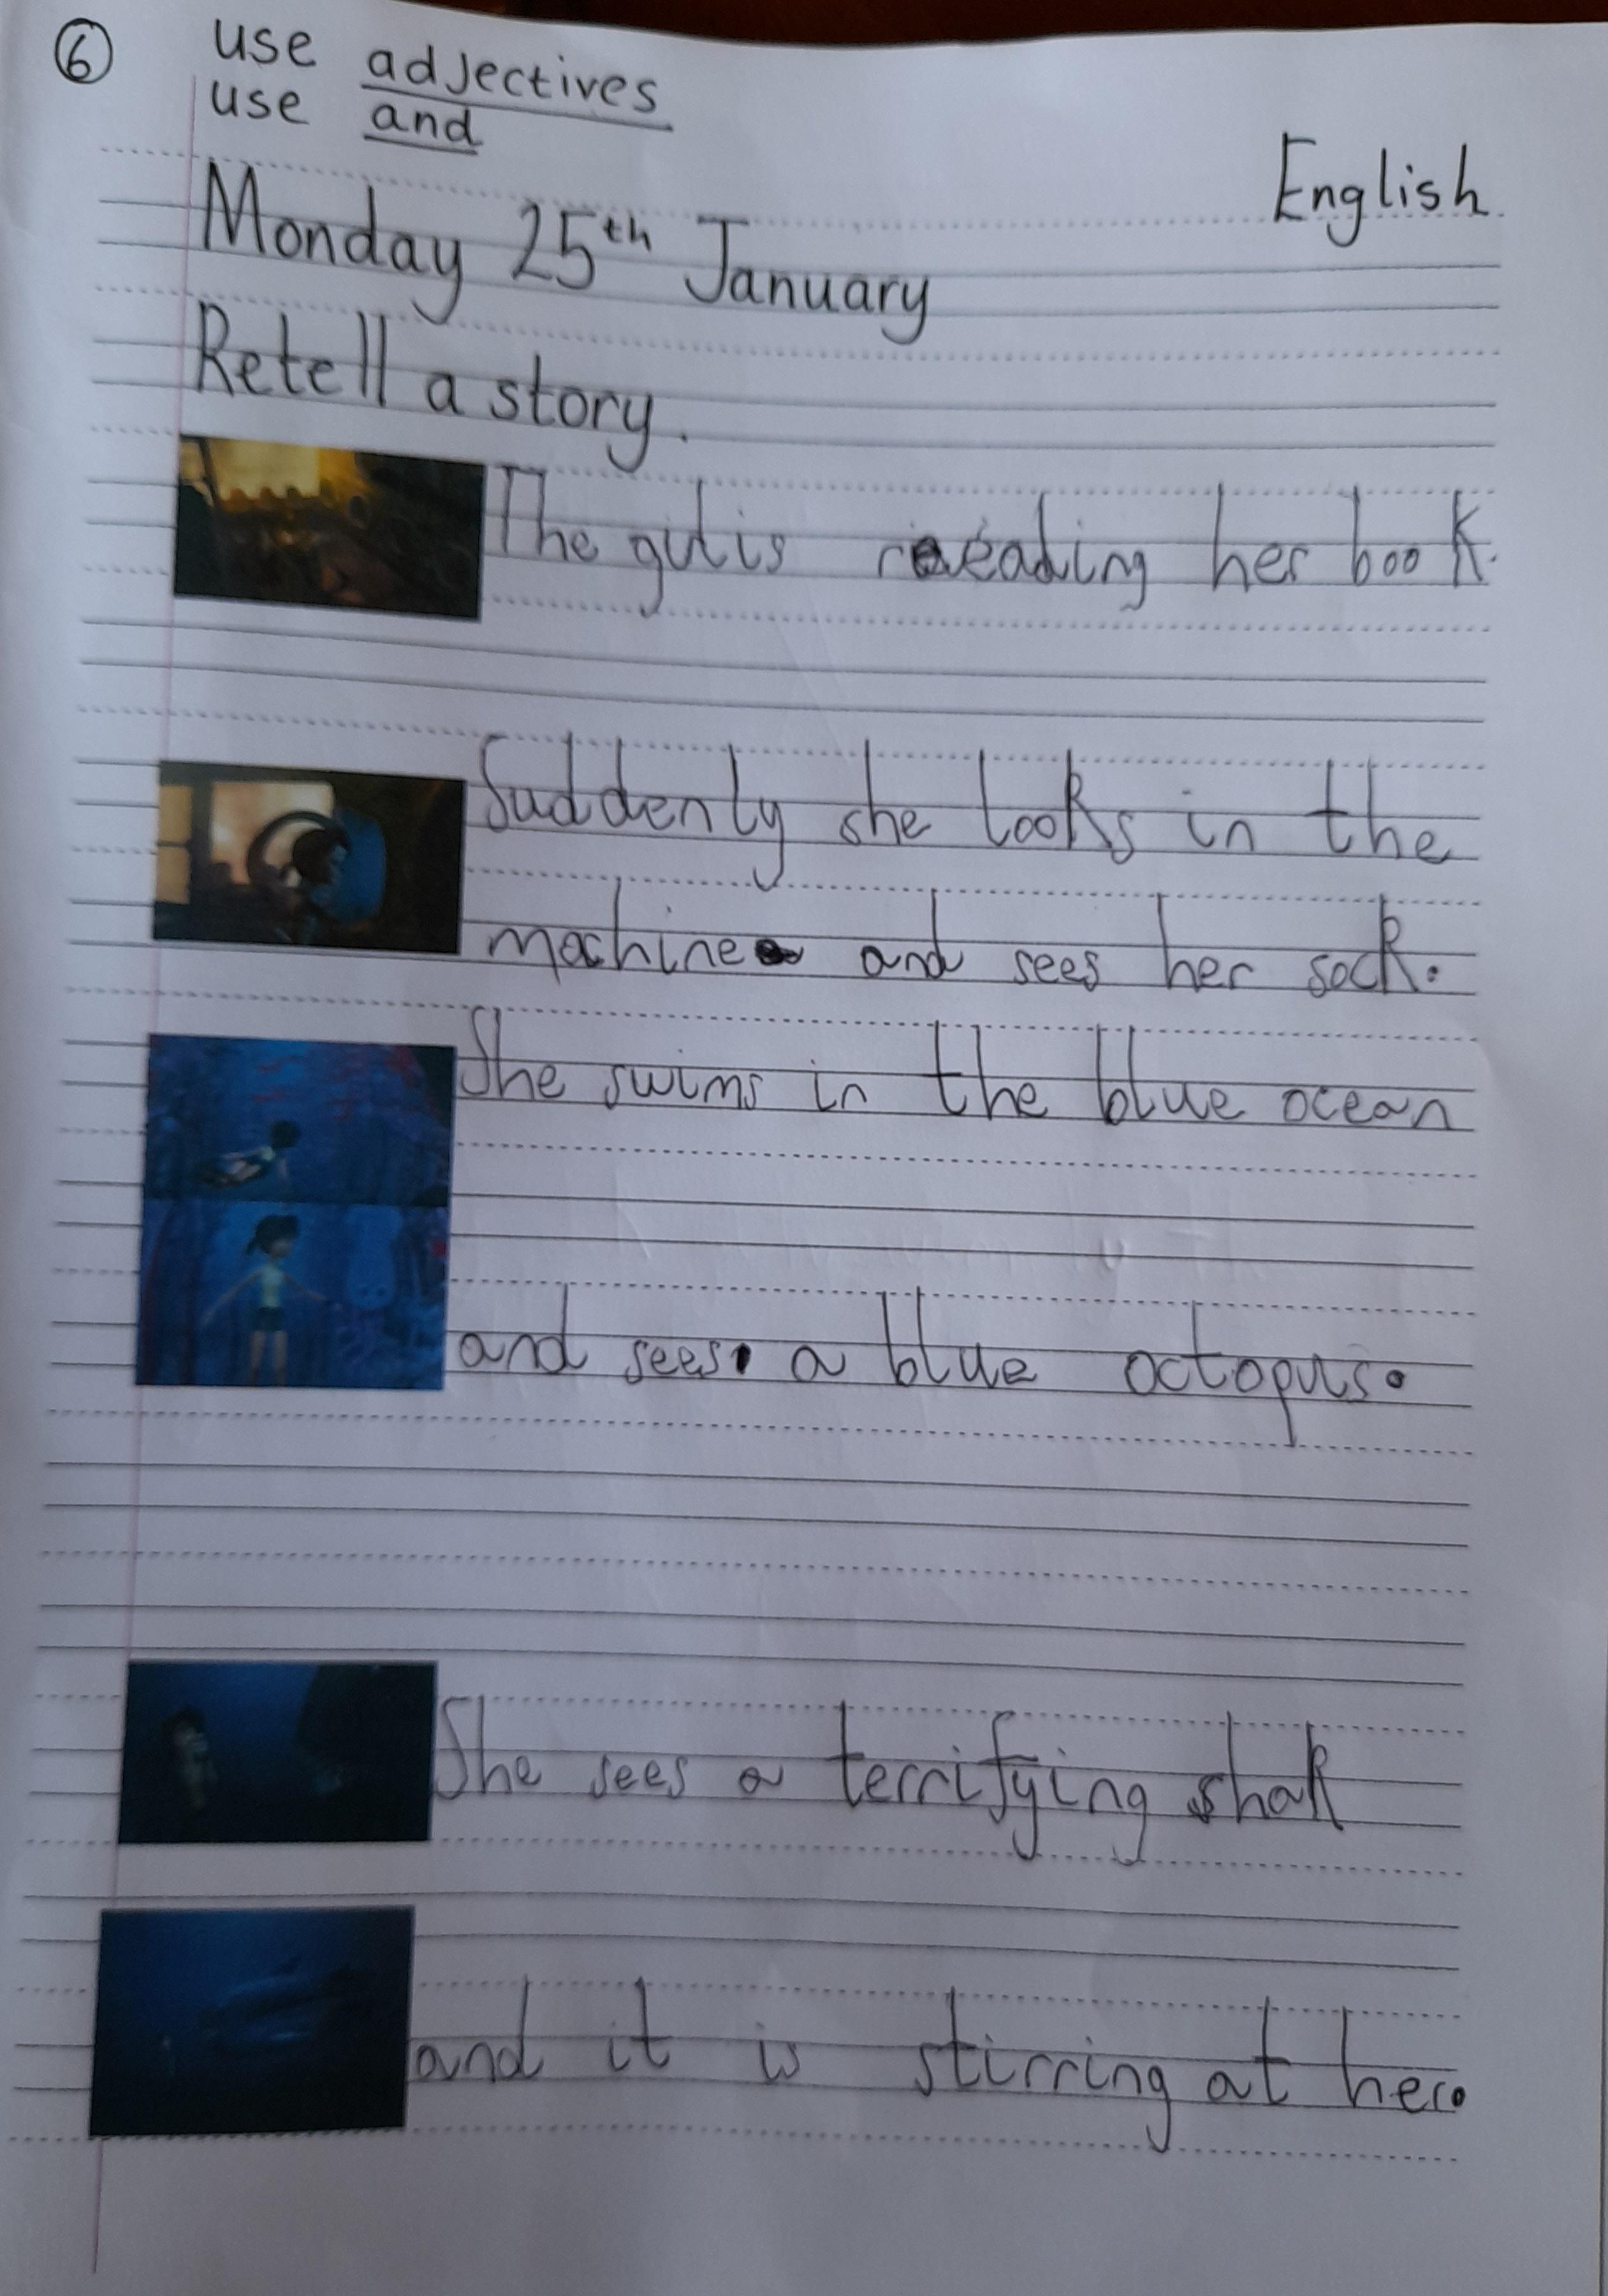 6 use adjectives
use and
English
Monday 25th January
Retell a story.
The girl is reading her book.
Suddenly she looks in the
machine and sees her sock.
She swims in the blue ocean
and sees a blue octopus.
She sees a terrifying shak
and it is stirring at her.